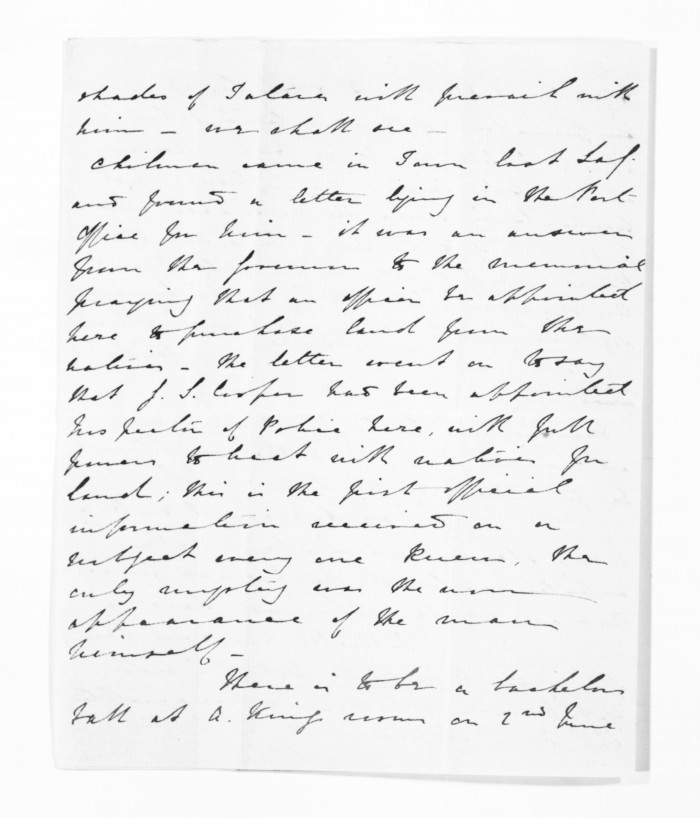 shades of Tatara will prevail with
him – we shall see –
Chilman came in Town last Sat.
and found a letter lying in the Post
Office for him – it was an answer
from the Governor to the memorial
praying that an officer be appointed
here to purchase land from the
natives – the letter went on to say
that J. S. Cooper had been appointed
Inspector of Police here, with full
powers to treat with natives for
land; this is the first official
information received on a
subject every one knew, the
only mystery was the non
appearance of the man
himself –
There is to be a bachelors
ball at A. Kings rooms on 2nd June